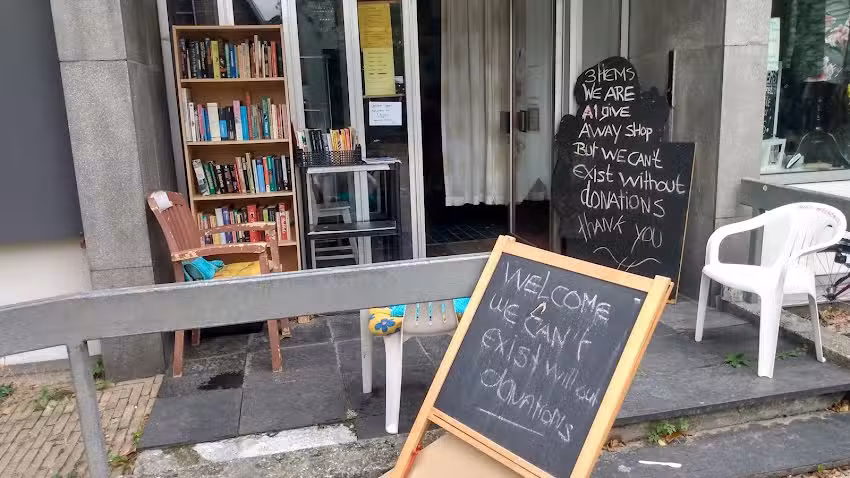 3 ITEMS
WE ARE
A GIVE
AWAY SHOP
BUT WE CAN'T
EXIST WITHOUT
dONATIONS
THANK YOU
WELCOME
WE CAN'T
EXIST WITHOUT
dONATIONS